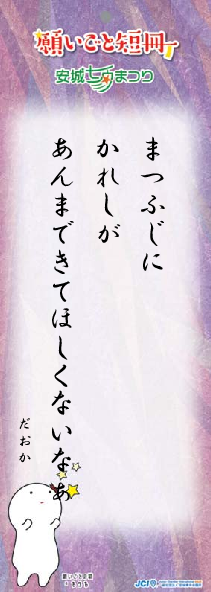 願いごと短冊
安城七夕まつり
まつふじに
かれしが
あんまできてほしくないなぁ
だおか
JCI